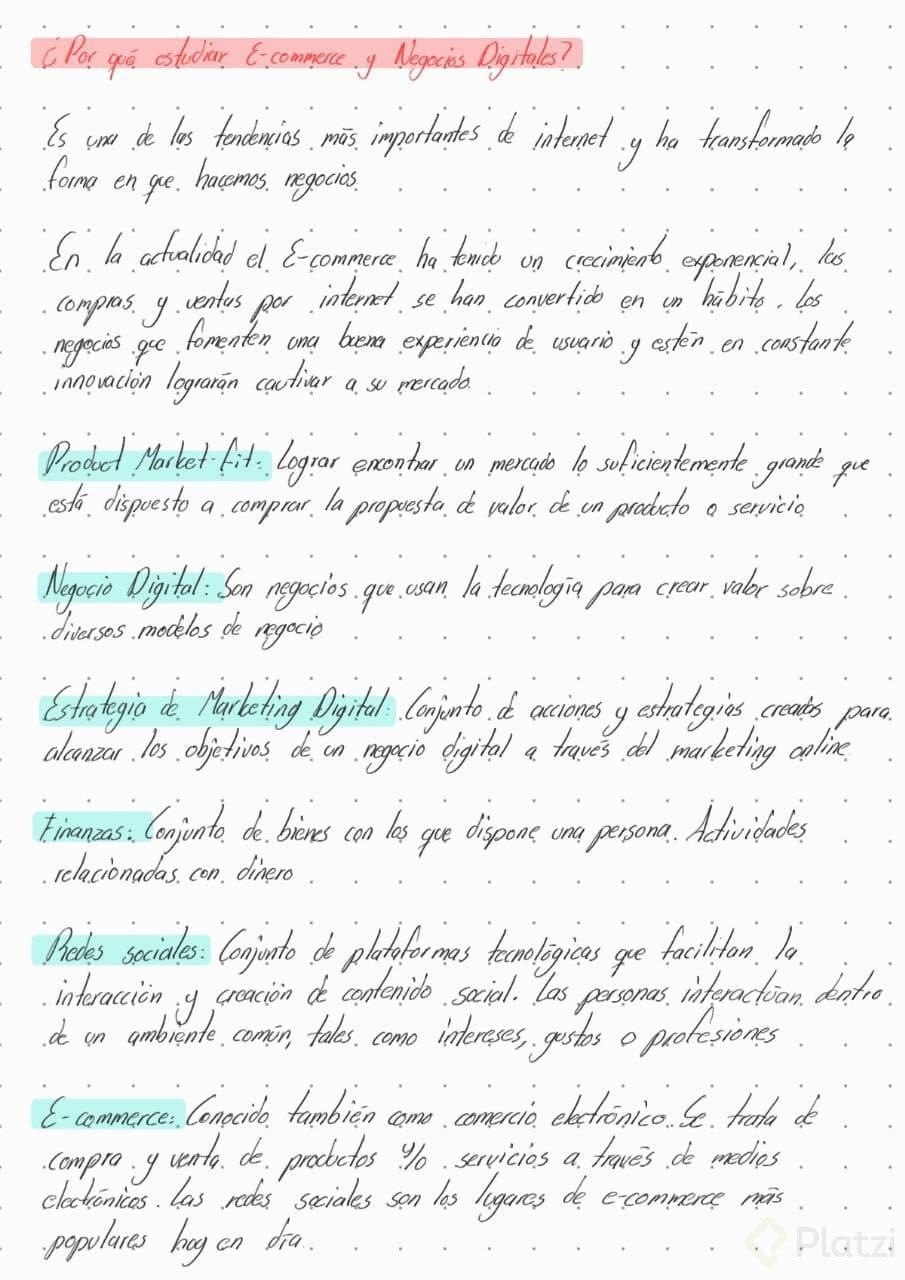 ¿Por qué estudiar E-commerce y Negocios Digitales?
Es una de las tendencias más importantes de internet y ha transformado la
forma en que hacemos negocios
En la actualidad el E-commerce ha tenido un crecimiento exponencial, las
compras y ventas por internet se han convertido en un hábito. Los
negocios que fomenten una buena experiencia de usuario y estén en constante
innovación lograrán cautivar a su mercado.
Product Market-fit: Lograr encontrar un mercado lo suficientemente grande que
está dispuesto a comprar la propuesta de valor de un producto o servicio
Negocio Digital: Son negocios que usan la tecnología para crear valor sobre
diversos modelos de negocio
Estrategia de Marketing Digital: Conjunto de acciones y estrategias creadas para
alcanzar los objetivos de un negocio digital a través del marketing online
Finanzas: Conjunto de bienes con los que dispone una persona. Actividades
relacionadas con dinero
Redes sociales: Conjunto de plataformas tecnológicas que facilitan la
interacción y creación de contenido social. Las personas interactúan dentro
de un ambiente común, tales como intereses, gustos o profesiones
E-commerce: Conocido también como comercio electrónico. Se trata de
compra y venta de productos y/o servicios a través de medios
electrónicos. Las redes sociales son los lugares de e-commerce más
populares hoy en día.
Platzi